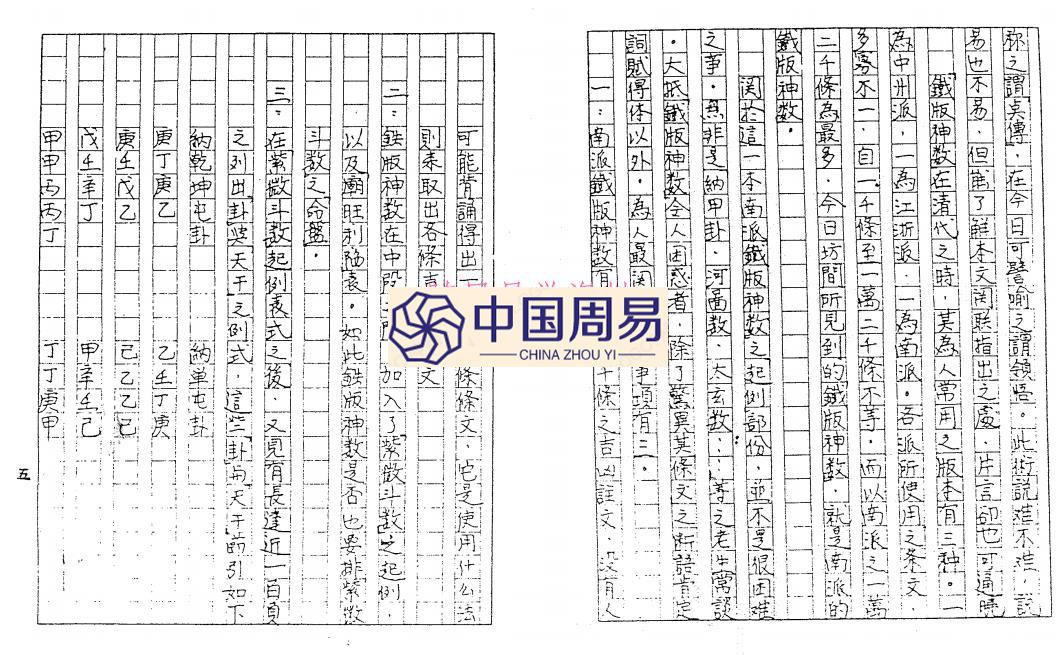 称之謂真傳．在今日可譬喻之謂領悟。此術説难不难，説
易也不易．但能了解本文関联指出之處．片言卻也可通曉
鐵版神数在清代之時，其為人常用之版本有三种。一
為中州派．一為江浙派．一為南派。各派所使用之条文．
多寡不一．自一千條至一萬二千條不等．而以南派之一萬
二千條為最多．今日坊間所見到的鐵版神数．就是南派的
鐵版神数．
関於這一本南派鐵版神数之起例部份．並不是很困难
之事．無非是納甲卦．河圖数．太玄数：：等之老生常談
．大抵鐵版神数令人困惑者．除了驚異其条文之断語肯定
詞賦得体以外．為人最 事項有三．
一：南派鐵版神数有 千條之吉凶註文．没有人
可能背誦得出一 條條文．它是使用什么法
則來取出各條 文
二：鉄版神数在中段 加入了紫微斗数之起例．
以及廟旺利陷表。如此鉄版神数是否也要排紫微
斗数之命盤．
三：在紫微斗数起例表式之後．又見有長達近一百頁
之列出「卦奘天干之例式．這些「卦」与天干節引如下
納乾坤屯卦 納单屯卦
庚丁庚乙 乙壬丁庚
庚壬戊乙 己乙乙已
戊壬辛丁 甲辛壬己
甲甲丙丙丁 丁丁庚甲
五
中国周易
CHINA ZHOU YI